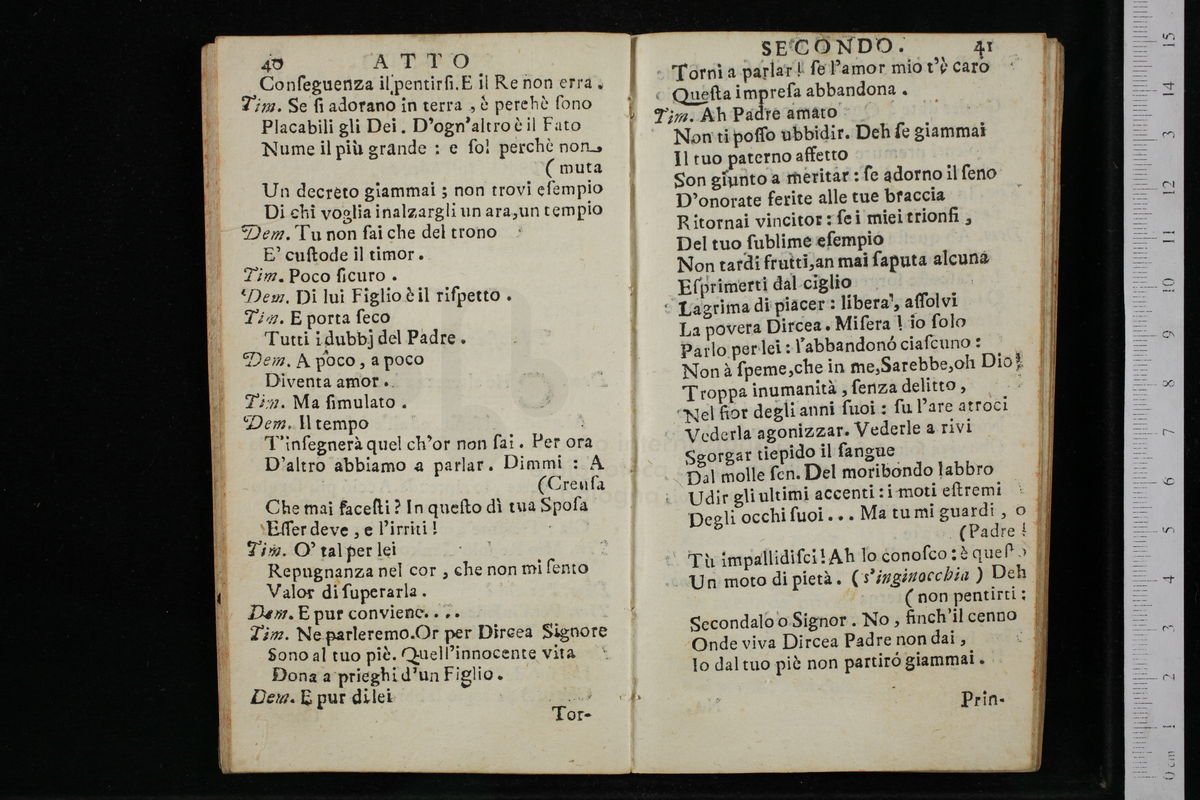 40 ATTO
Conſeguenza il pentirſi. E il Re non erra.
Tim. Se ſi adorano in terra, è perehè ſono
Placabili gli Dei. D'ogn'altro è il Fato
Nume il più grande: e ſol perchè non
(muta
Un decreto giammai; non trovi eſempio
Di chi voglia inalzargli un ara, un tempio
Dem. Tu non ſai che del trono
E' cuſtode il timor.
Tim. Poco ſicuro.
Dem. Di lui Figlio è il riſpetto.
Tim. E porta ſeco
Tutti i dubbj del Padre.
Dem. A poco, a poco
Diventa amor.
Tim. Ma ſimulato.
Dem. Il tempo
T'inſegnerà quel ch'or non ſai. Per ora
D'altro abbiamo a parlar. Dimmi: A
(Creuſa
Che mai faceſti? In queſto dì tua Spoſa
Eſſer deve, e l'irriti!
Tim. O' tal per lei
Repugnanza nel cor, che non mi ſento
Valor di ſuperarla.
Dem. E pur conviene....
Tim. Ne parleremo. Or per Dircea Signore
Sono al tuo piè. Quell'innocente vita
Dona a prieghi d'un Figlio.
Dem. E pur di lei
Tor-
SECONDO. 41
Torni a parlar! ſe l'amor mio t'è caro
Queſta impreſa abbandona.
Tim. Ah Padre amato
Non ti poſſo ubbidir. Deh ſe giammai
Il tuo paterno affetto
Son giunto a meritar: ſe adorno il ſeno
D'onorate ferite alle tue braccia
Ritornai vincitor: ſe i miei trionfi,
Del tuo ſublime eſempio
Non tardi frutti, an mai ſaputa alcuna
Eſprimerti dal ciglio
Lagrima di piacer: libera, aſſolvi
La povera Dircea. Miſera! io ſolo
Parlo per lei: l'abbandonò ciaſcuno:
Non à ſpeme, che in me, Sarebbe, oh Dio!
Troppa inumanità, ſenza delitto,
Nel fior degli anni ſuoi: ſu l'are atroci
Vederla agonizzar. Vederle a rivi
Sgorgar tiepido il ſangue
Dal molle ſen. Del moribondo labbro
Udir gli ultimi accenti: i moti eſtremi
Degli occhi ſuoi... Ma tu mi guardi, o
(Padre!
Tù impallidiſci! Ah lo conoſco: è queſto
Un moto di pietà. (s'inginocchia) Deh
(non pentirti:
Secondalo o Signor. No, finch'il cenno
Onde viva Dircea Padre non dai,
Io dal tuo piè non partirò giammai.
Prin-
15
14
13
12
11
10
9
8
7
6
5
4
3
2
1
0 cm